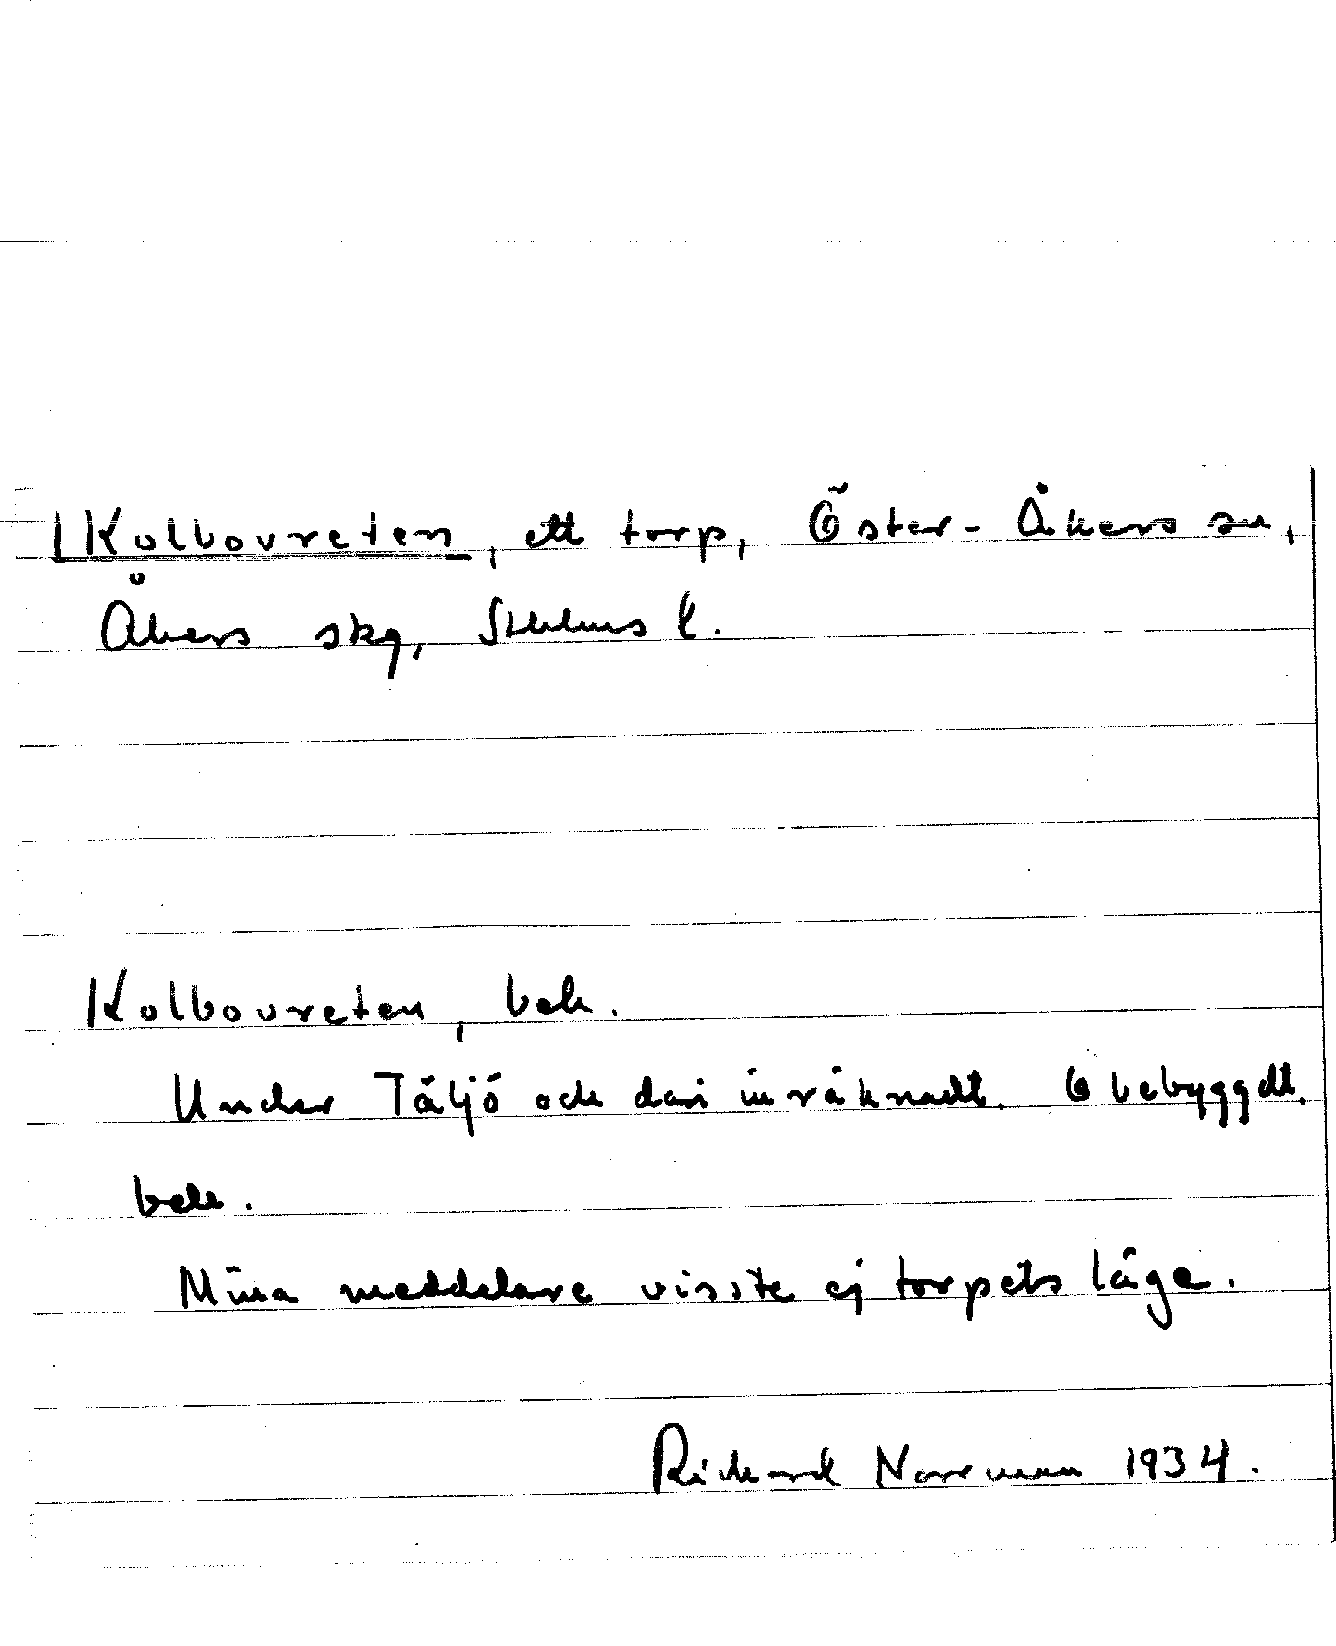 Kolbovreten, ett torp, Öster-Åkers sn,
Åkers skg, Sthlms l.
Kolbovreten, bek.
Under Täljö och däri inräknadt. Obebyggdt.
bek.
Mina meddelare visste ej torpets läge.
Richard Norrman 1934.